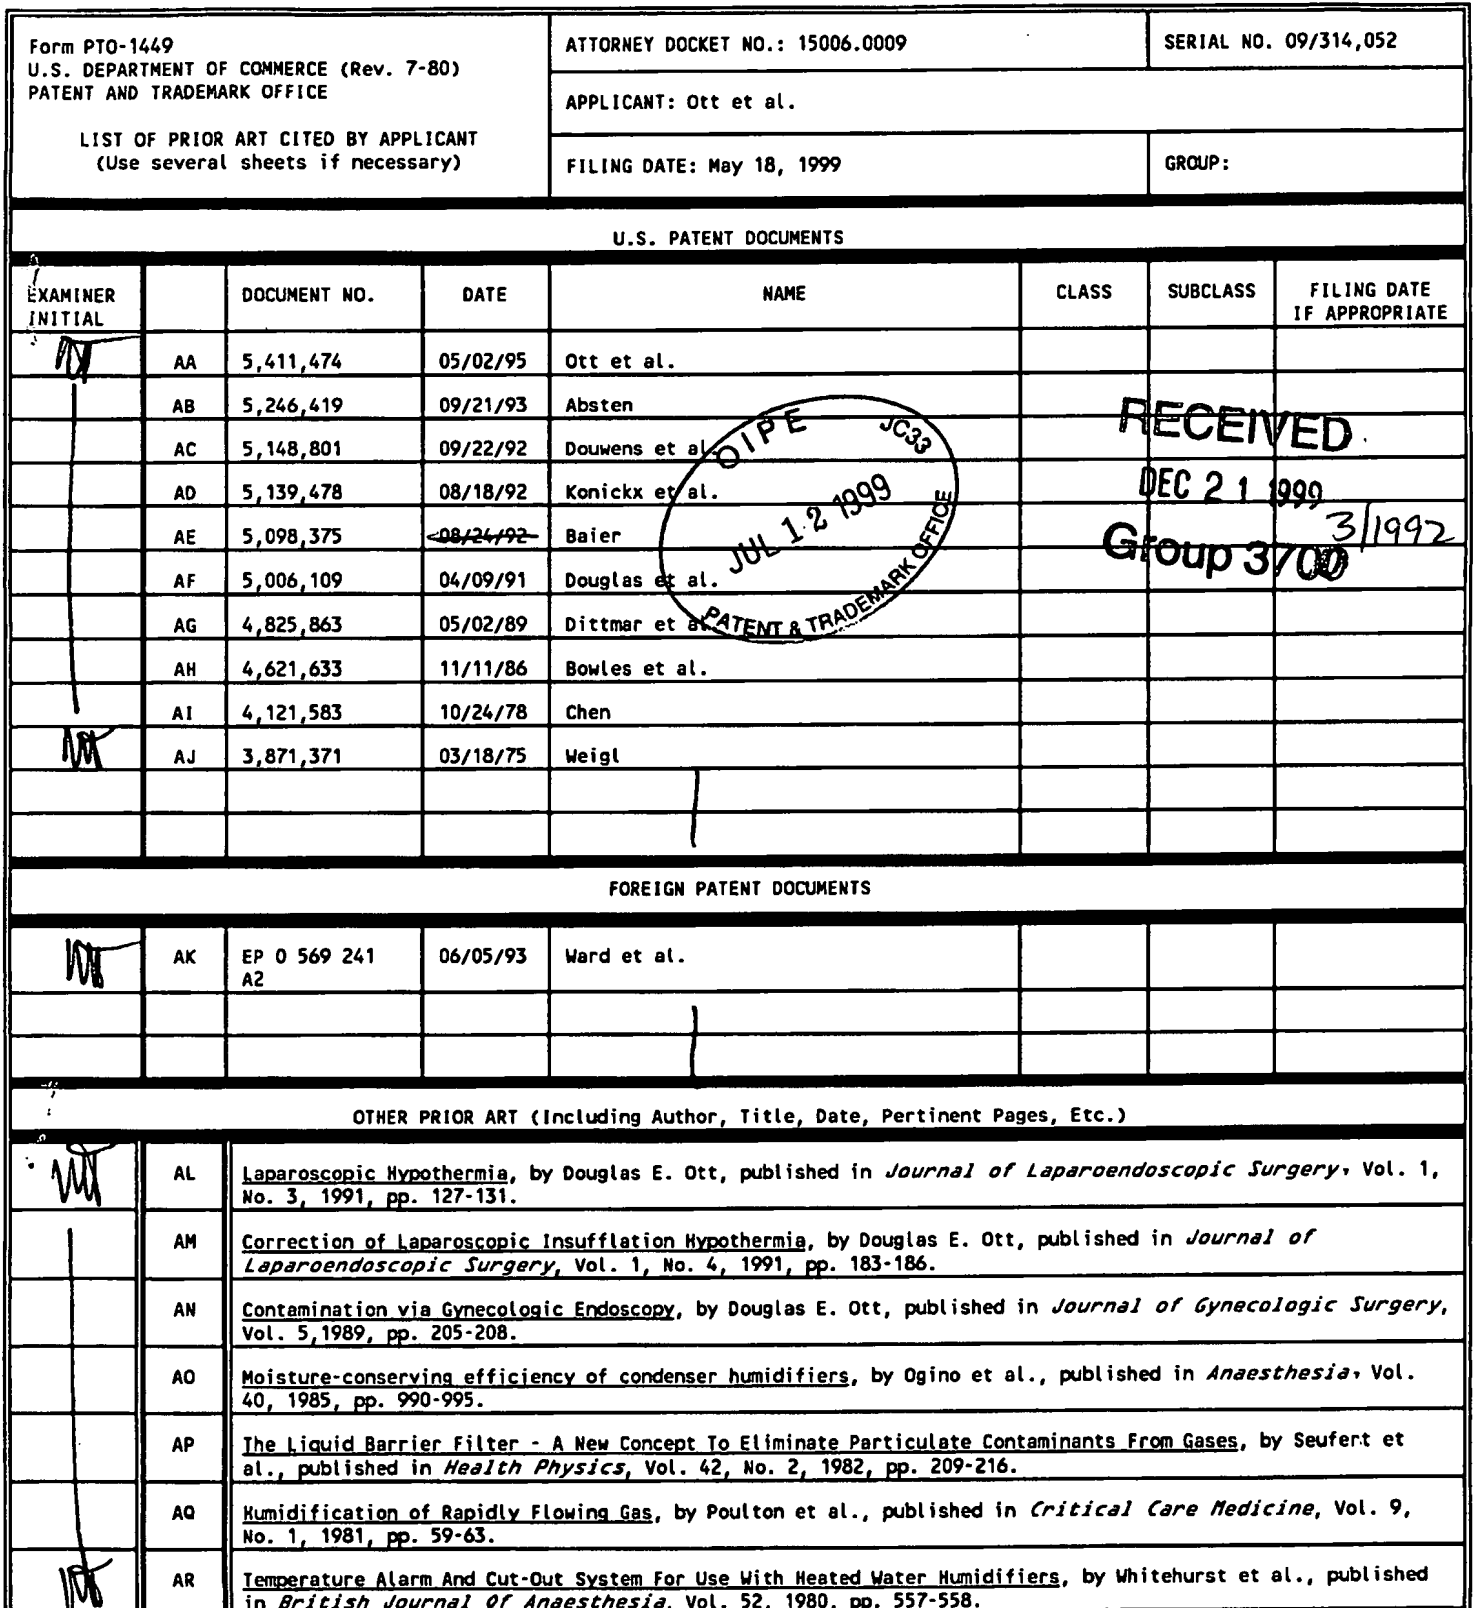 Form PTO-1449
U.S. DEPARTMENT OF COMMERCE (Rev. 7-80)
PATENT AND TRADEMARK OFFICE
LIST OF PRIOR ART CITED BY APPLICANT
(Use several sheets if necessary)
ATTORNEY DOCKET NO.: 15006.0009
SERIAL NO. 09/314,052
APPLICANT: Ott et al.
FILING DATE: May 18, 1999
GROUP:
U.S. PATENT DOCUMENTS
EXAMINER INITIAL
DOCUMENT NO.
DATE
NAME
CLASS
SUBCLASS
FILING DATE IF APPROPRIATE
AA 5,411,474 05/02/95 Ott et al.
AB 5,246,419 09/21/93 Absten
AC 5,148,801 09/22/92 Douwens et al.
AD 5,139,478 08/18/92 Konickx et al.
AE 5,098,375 08/24/92 Baier 3/1992
AF 5,006,109 04/09/91 Douglas et al.
AG 4,825,863 05/02/89 Dittmar et al.
AH 4,621,633 11/11/86 Bowles et al.
AI 4,121,583 10/24/78 Chen
AJ 3,871,371 03/18/75 Weigl
OIPE JC33
JUL 12 1999
PATENT & TRADEMARK OFFICE
RECEIVED
DEC 21 1999
Group 3700
FOREIGN PATENT DOCUMENTS
AK EP 0 569 241 A2 06/05/93 Ward et al.
OTHER PRIOR ART (Including Author, Title, Date, Pertinent Pages, Etc.)
AL Laparoscopic Hypothermia, by Douglas E. Ott, published in Journal of Laparoendoscopic Surgery, Vol. 1,
No. 3, 1991, pp. 127-131.
AM Correction of Laparoscopic Insufflation Hypothermia, by Douglas E. Ott, published in Journal of
Laparoendoscopic Surgery, Vol. 1, No. 4, 1991, pp. 183-186.
AN Contamination via Gynecologic Endoscopy, by Douglas E. Ott, published in Journal of Gynecologic Surgery,
Vol. 5,1989, pp. 205-208.
AO Moisture-conserving efficiency of condenser humidifiers, by Ogino et al., published in Anaesthesia, Vol.
40, 1985, pp. 990-995.
AP The Liquid Barrier Filter - A New Concept To Eliminate Particulate Contaminants From Gases, by Seufert et
al., published in Health Physics, Vol. 42, No. 2, 1982, pp. 209-216.
AQ Humidification of Rapidly Flowing Gas, by Poulton et al., published in Critical Care Medicine, Vol. 9,
No. 1, 1981, pp. 59-63.
AR Temperature Alarm And Cut-Out System For Use With Heated Water Humidifiers, by Whitehurst et al., published
in British Journal Of Anaesthesia, Vol. 52, 1980, pp. 557-558.